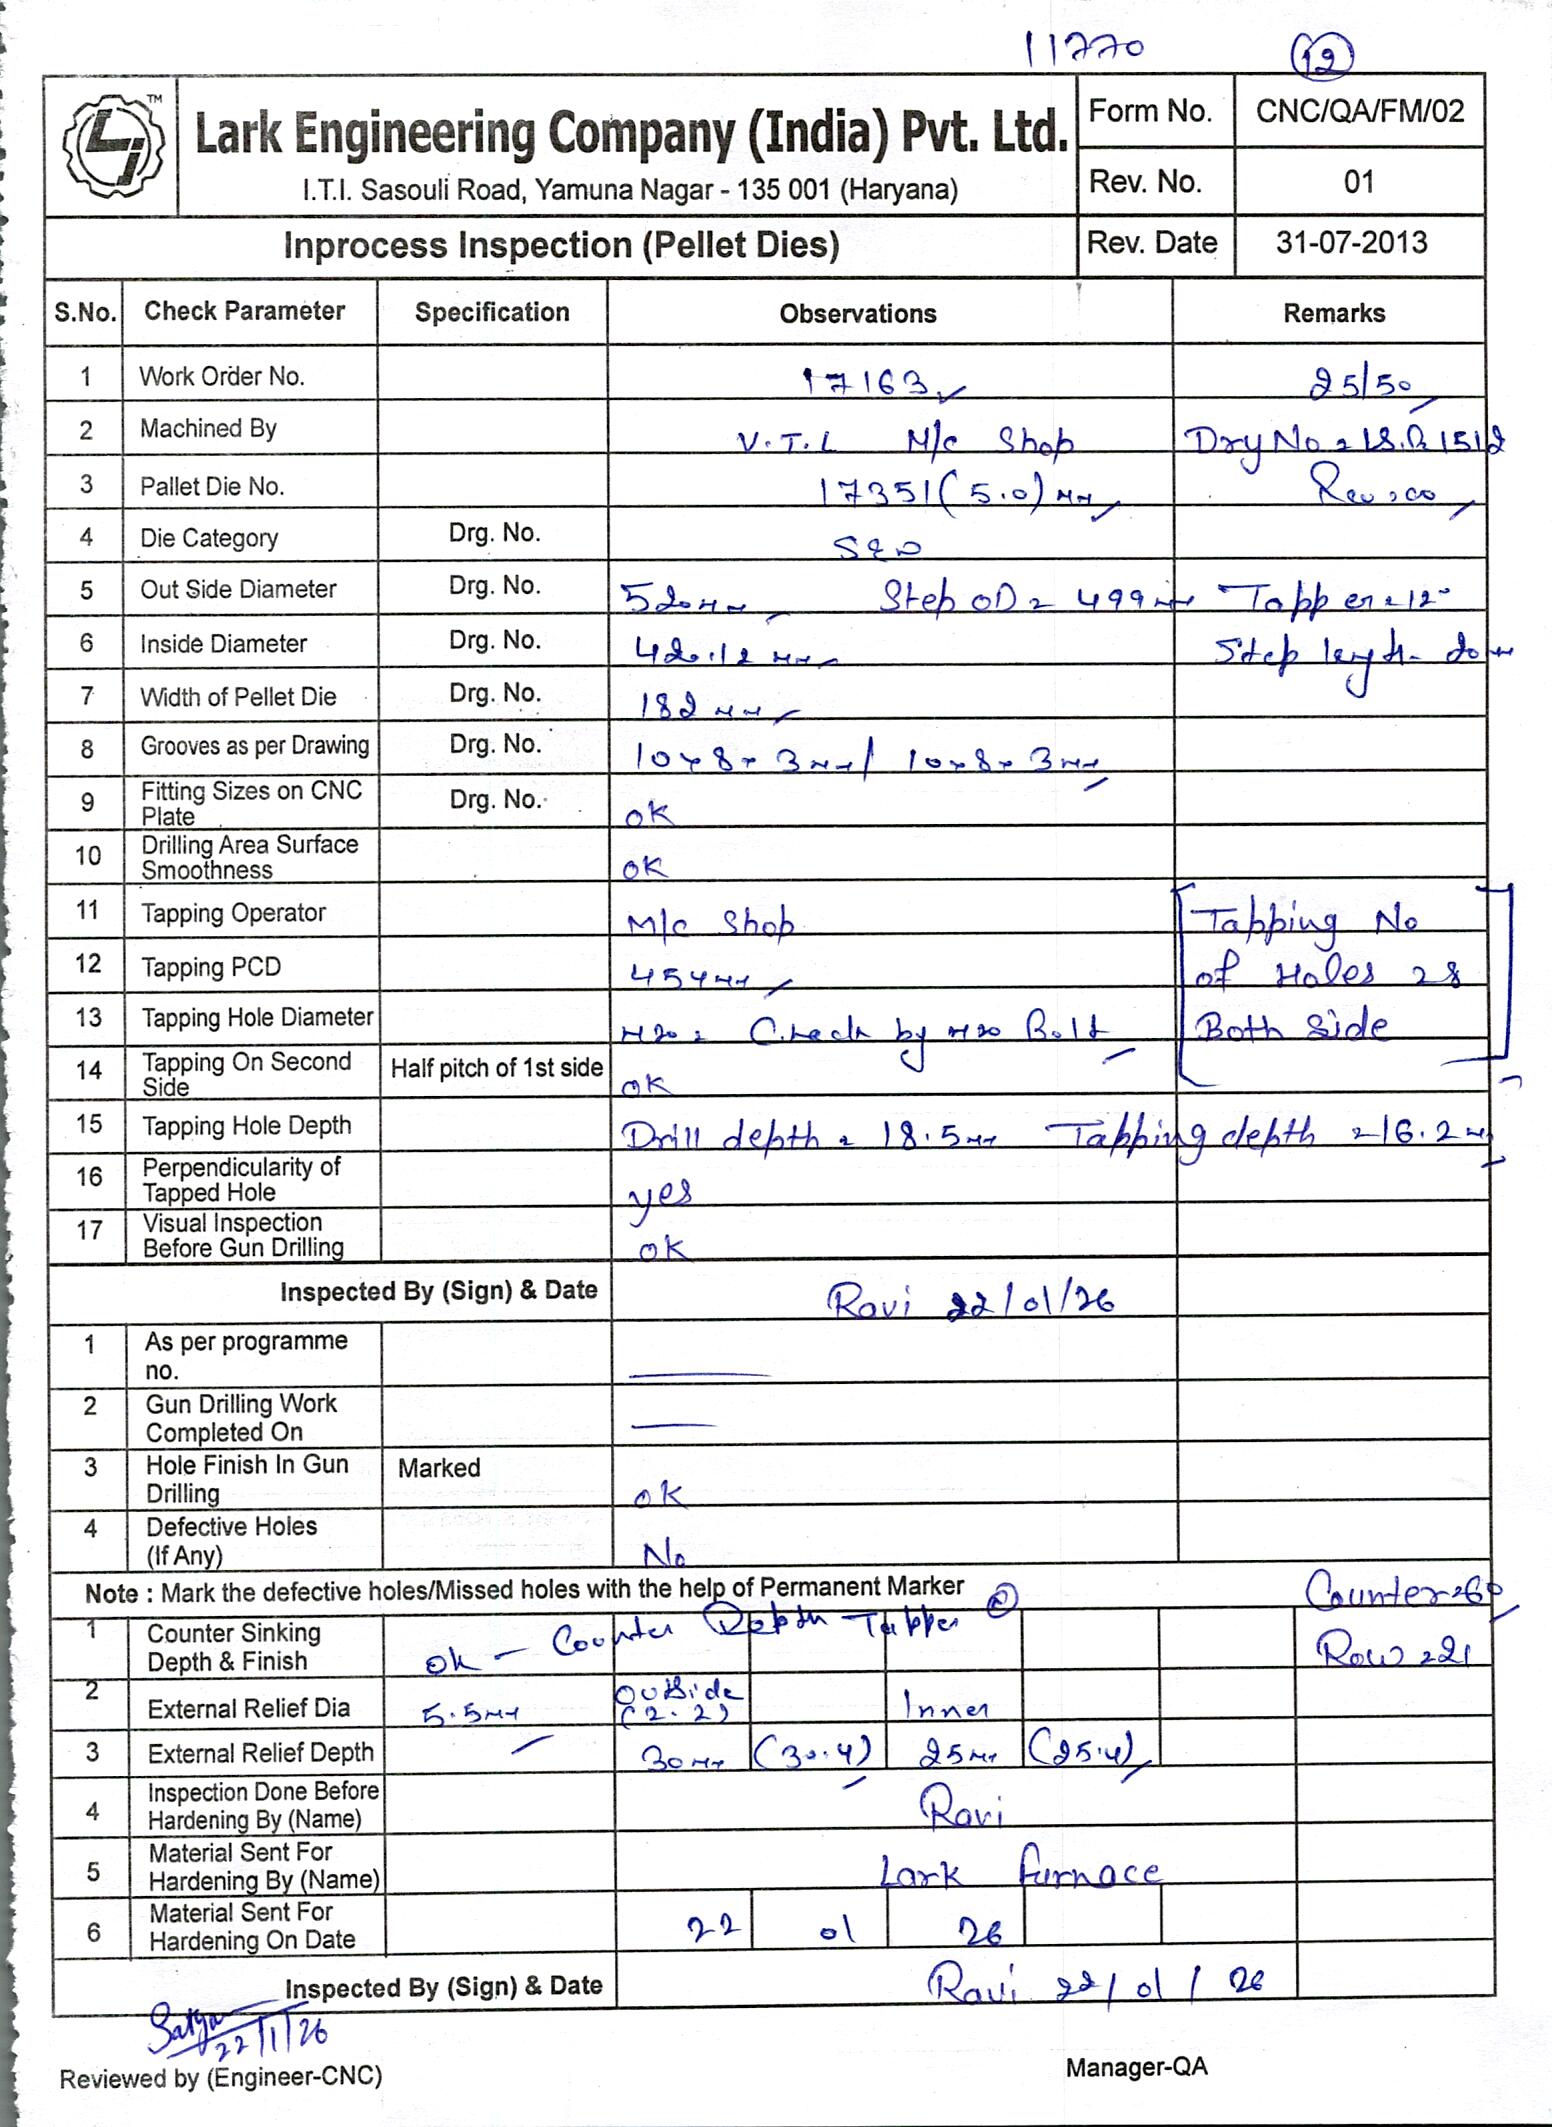 11770 12
Lark Engineering Company (India) Pvt. Ltd. TM
I.T.I. Sasouli Road, Yamuna Nagar - 135 001 (Haryana)
Form No. CNC/QA/FM/02
Rev. No. 01
Inprocess Inspection (Pellet Dies) Rev. Date 31-07-2013
S.No. Check Parameter Specification Observations Remarks
1 Work Order No. 17163 25/50
2 Machined By V.T.L M/c Shop
3 Pallet Die No. 17351 (5.0) mm
4 Die Category Drg. No.
5 Out Side Diameter Drg. No. 520mm Step OD = 499mm Tapper = 12°
6 Inside Diameter Drg. No. 420.12 mm Step length - 20mm
7 Width of Pellet Die Drg. No. 182 mm
8 Grooves as per Drawing Drg. No. 10x8x3mm / 10x8x3mm
9 Fitting Sizes on CNC Plate Drg. No. ok
10 Drilling Area Surface Smoothness ok
11 Tapping Operator M/c Shop Tapping No
12 Tapping PCD 454mm of Holes = 8
13 Tapping Hole Diameter M20 = Check by M20 Bolt Both Side
14 Tapping On Second Side Half pitch of 1st side ok
15 Tapping Hole Depth Drill depth = 18.5mm Tapping depth = 16.2mm
16 Perpendicularity of Tapped Hole yes
17 Visual Inspection Before Gun Drilling ok
Inspected By (Sign) & Date Ravi 22/01/26
1 As per programme no.
2 Gun Drilling Work Completed On
3 Hole Finish In Gun Drilling Marked ok
4 Defective Holes (If Any) No
Note : Mark the defective holes/Missed holes with the help of Permanent Marker Counter = 60
1 Counter Sinking Depth & Finish ok - Counter Depth Tapper Row = 21
2 External Relief Dia 5.5mm Outside (2.2) Inner
3 External Relief Depth 30mm (30.4) 25mm (25.4)
4 Inspection Done Before Hardening By (Name) Ravi
5 Material Sent For Hardening By (Name) Lark furnace
6 Material Sent For Hardening On Date 22 01 26
Inspected By (Sign) & Date Ravi 22/01/26
Satya
22/1/26
Reviewed by (Engineer-CNC) Manager-QA